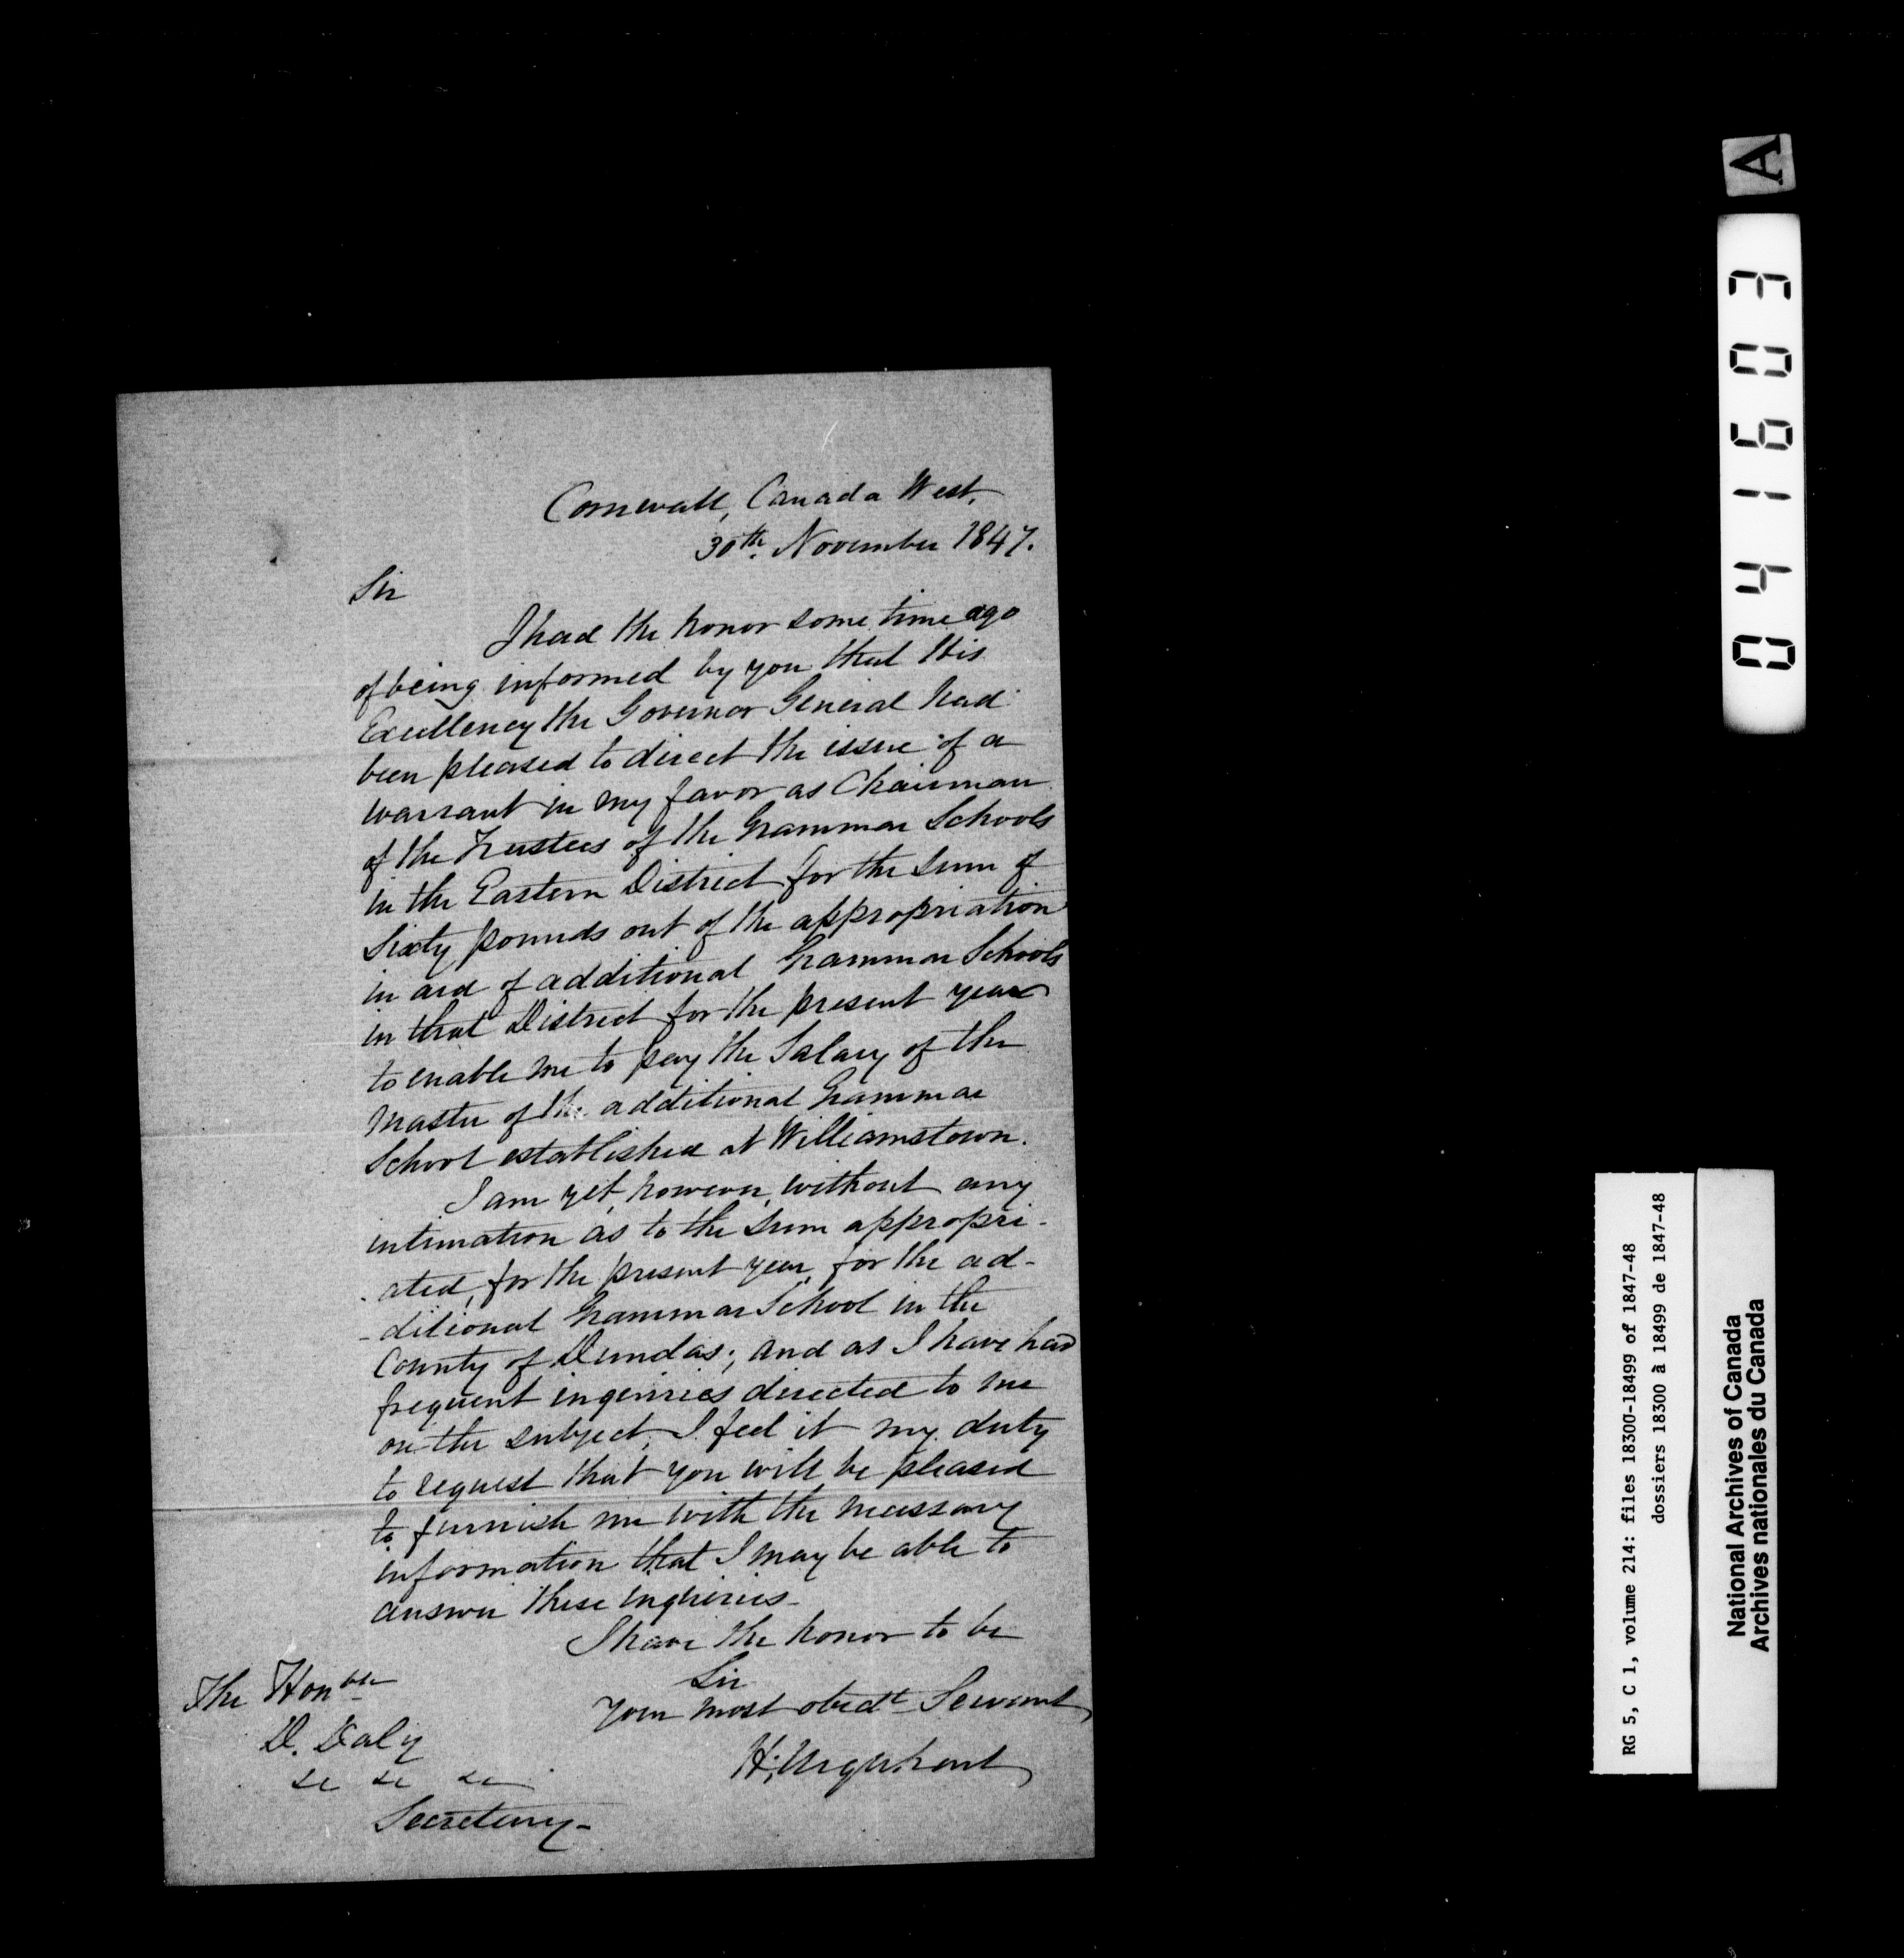 Cornwall, Canada West,
30th November 1847.
Sir
I had the honor some time ago
of being informed by you that His
Excellency the Governor General had
been pleased to direct the issue of a
warrant in my favor as Chairman
of the Trustees of the Grammar Schools
in the Eastern District for the sum of
Sixty pounds out of the appropriation
in aid of additional Grammar Schools
in that District for the present year
to enable me to pay the Salary of the
Master of the additional Grammar
School established at Williamstown.
I am yet, however, without any
intimation as to the sum appropri-
-ated, for the present year, for the ad-
-ditional Grammar School in the
County of Dundas; and as I have had
frequent inquiries directed to me
on the subject, I feel it my duty
to request that you will be pleased
to furnish me with the necessary
information that I may be able to
answer these inquiries-
I have the honor to be
Sir
Your most obedt Servant
H. Urquhart
The Honble
D. Daly
&c &c &c
Secretary-
A
041603
RG 5, C 1, volume 214: files 18300-18499 of 1847-48
dossiers 18300 à 18499 de 1847-48
National Archives of Canada
Archives nationales du Canada